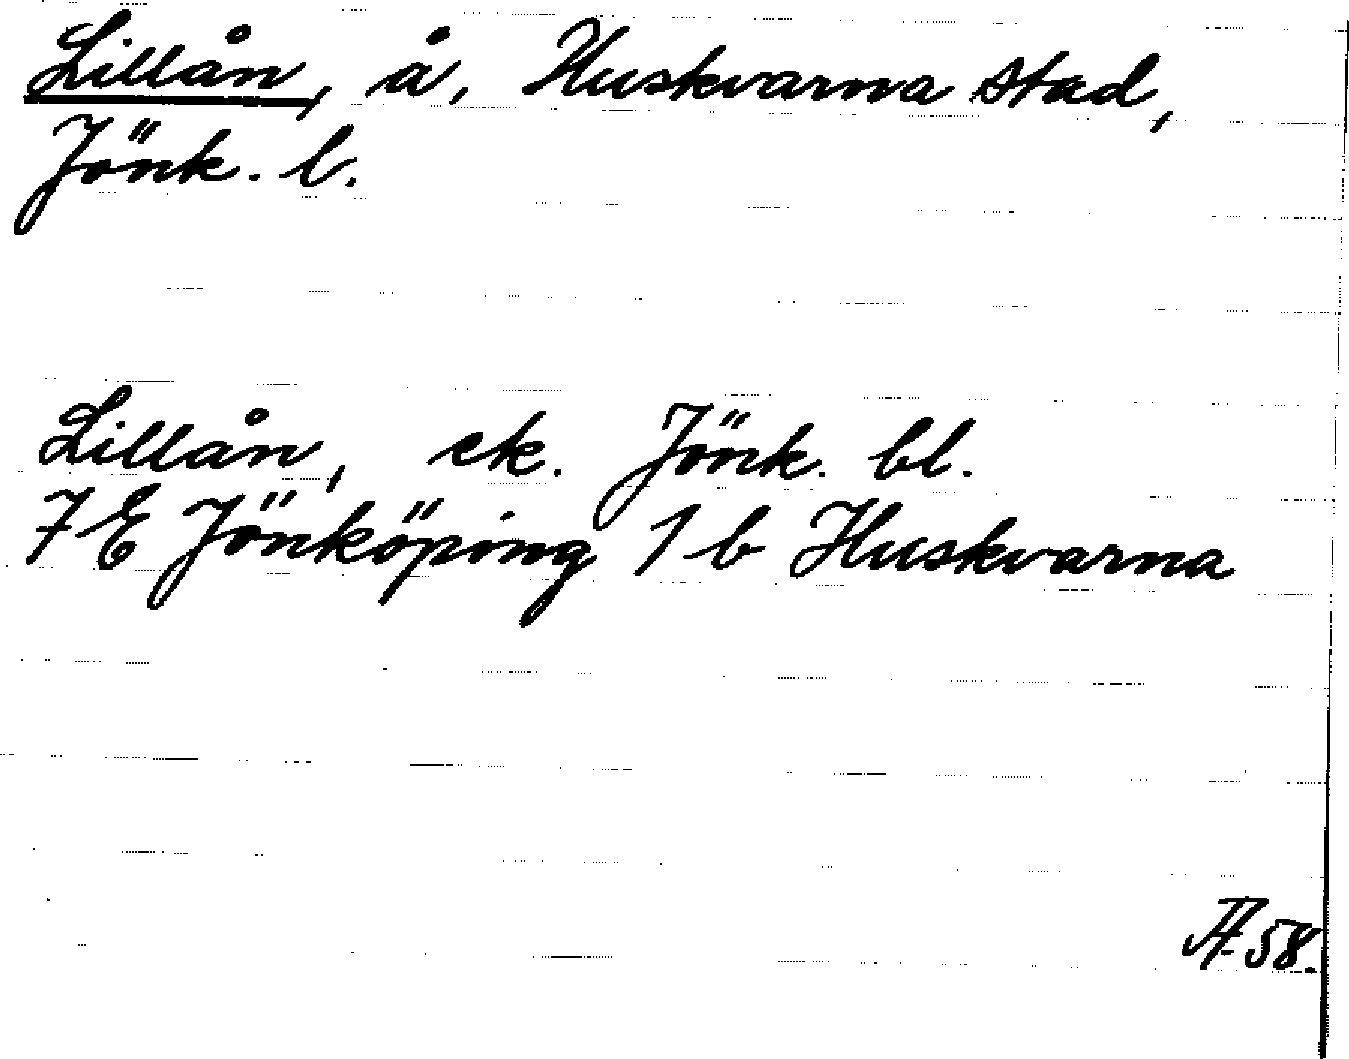 Lillån, å, Huskvarna stad,
Jönk. l.
Lillån, ek. Jönk. bl.
7 E Jönköping 1 b Huskvarna
58.